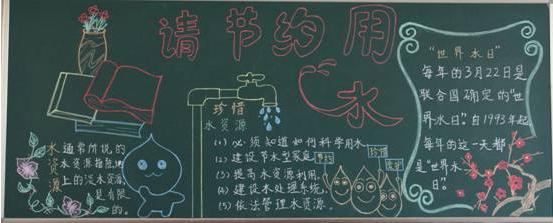 请节约用
水
水资源
通常所说的
水资源指陆地
上的淡水资源
是有限
的。
珍惜
水资源
(1)必须知道如何科学用水
(2)建设节水型家庭
(3)提高水资源利用。
(4)建设水处理系统。
(5)依法管理水资源。
珍惜
"世界水日"
每年的3月22日是
联合国确定的"世
界水日"。自1993年起
每年的这一天都
是"世界水
日"。